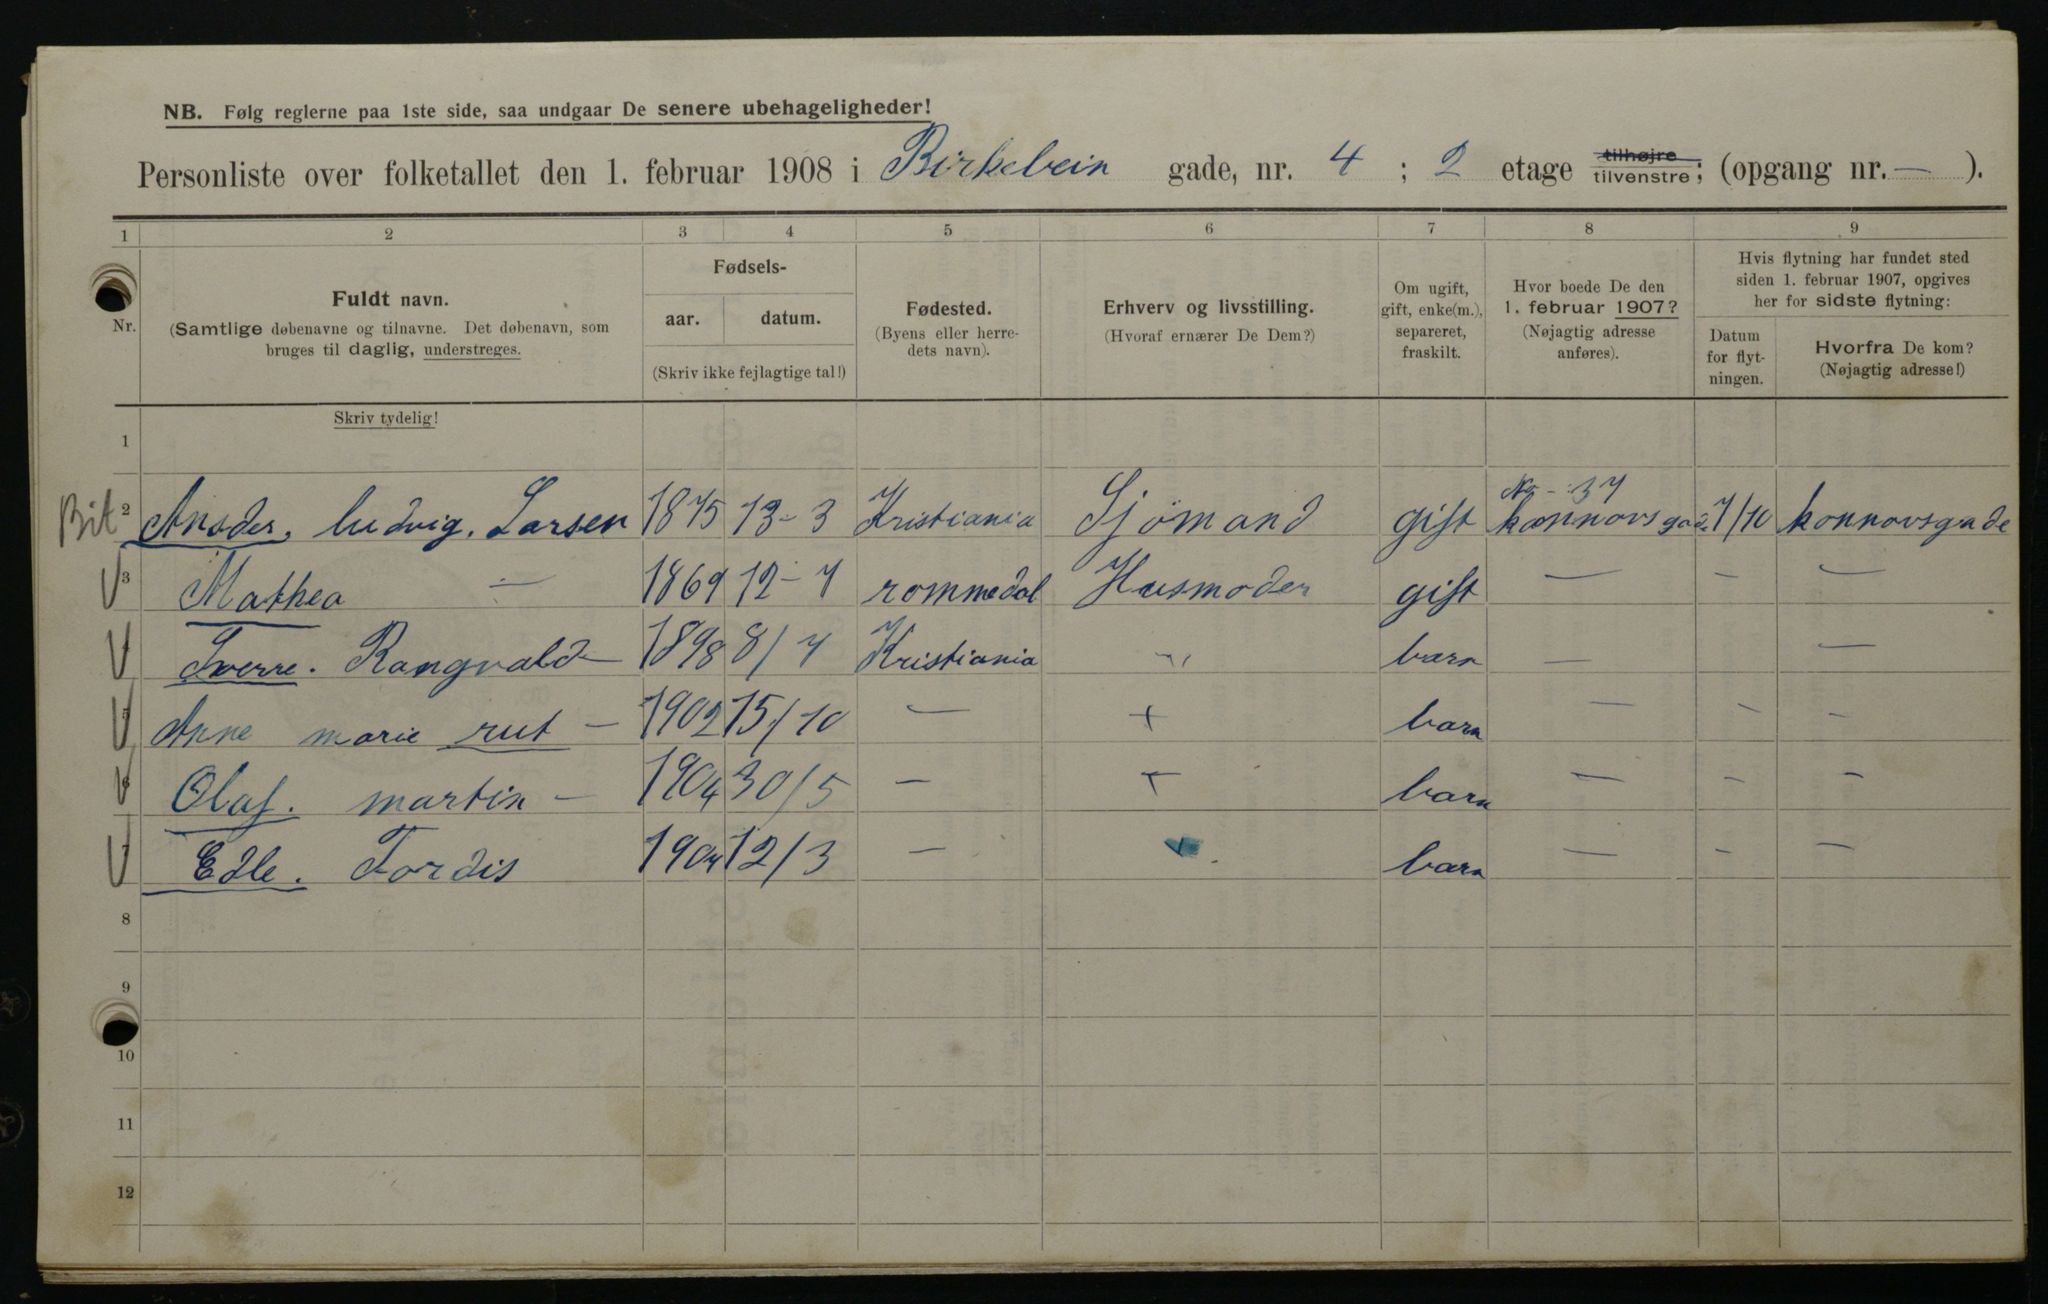 NB. Følg reglerne paa 1ste side, saa undgaar De senere ubehageligheder!
Personliste over folketallet den 1. februar 1908 i Birkebein gade, nr. 4 ; 2 etage tilhøjre tilvenstre; (opgang nr. — ).
1 2 3 4 5 6 7 8 9
Nr.
Fuldt navn.
(Samtlige døbenavne og tilnavne. Det døbenavn, som
bruges til daglig, understreges.
Fødsels-
aar. datum.
(Skriv ikke fejlagtige tal!)
Fødested.
(Byens eller herre-
dets navn).
Erhverv og livsstilling.
(Hvoraf ernærer De Dem?)
Om ugift,
gift, enke(m.),
separeret,
fraskilt.
Hvor boede De den
1. februar 1907?
(Nøjagtig adresse
anføres).
Hvis flytning har fundet sted
siden 1. februar 1907, opgives
her for sidste flytning:
Datum
for flyt-
ningen.
Hvorfra De kom?
(Nøjagtig adresse!)
Skriv tydelig!
1
No - 37
Bit 2 Ansder. ludvig. Larsen 1875 13-3 Kristiania Sjömand gift konnovsgade 7/10 konnovsgade
3 Mathea — 1869 12-7 rommedal Husmoder gift — — —
4 Sverre. Rangvald — 1898 8/7 Kristiania " barn — —
5 Anne marie rut — 1902 15/10 — + barn — — —
6 Olaf. martin — 1904 30/5 — + barn — — —
7 Edle. Tordis 12/3 — + barn — — —
8
9
10
11
12